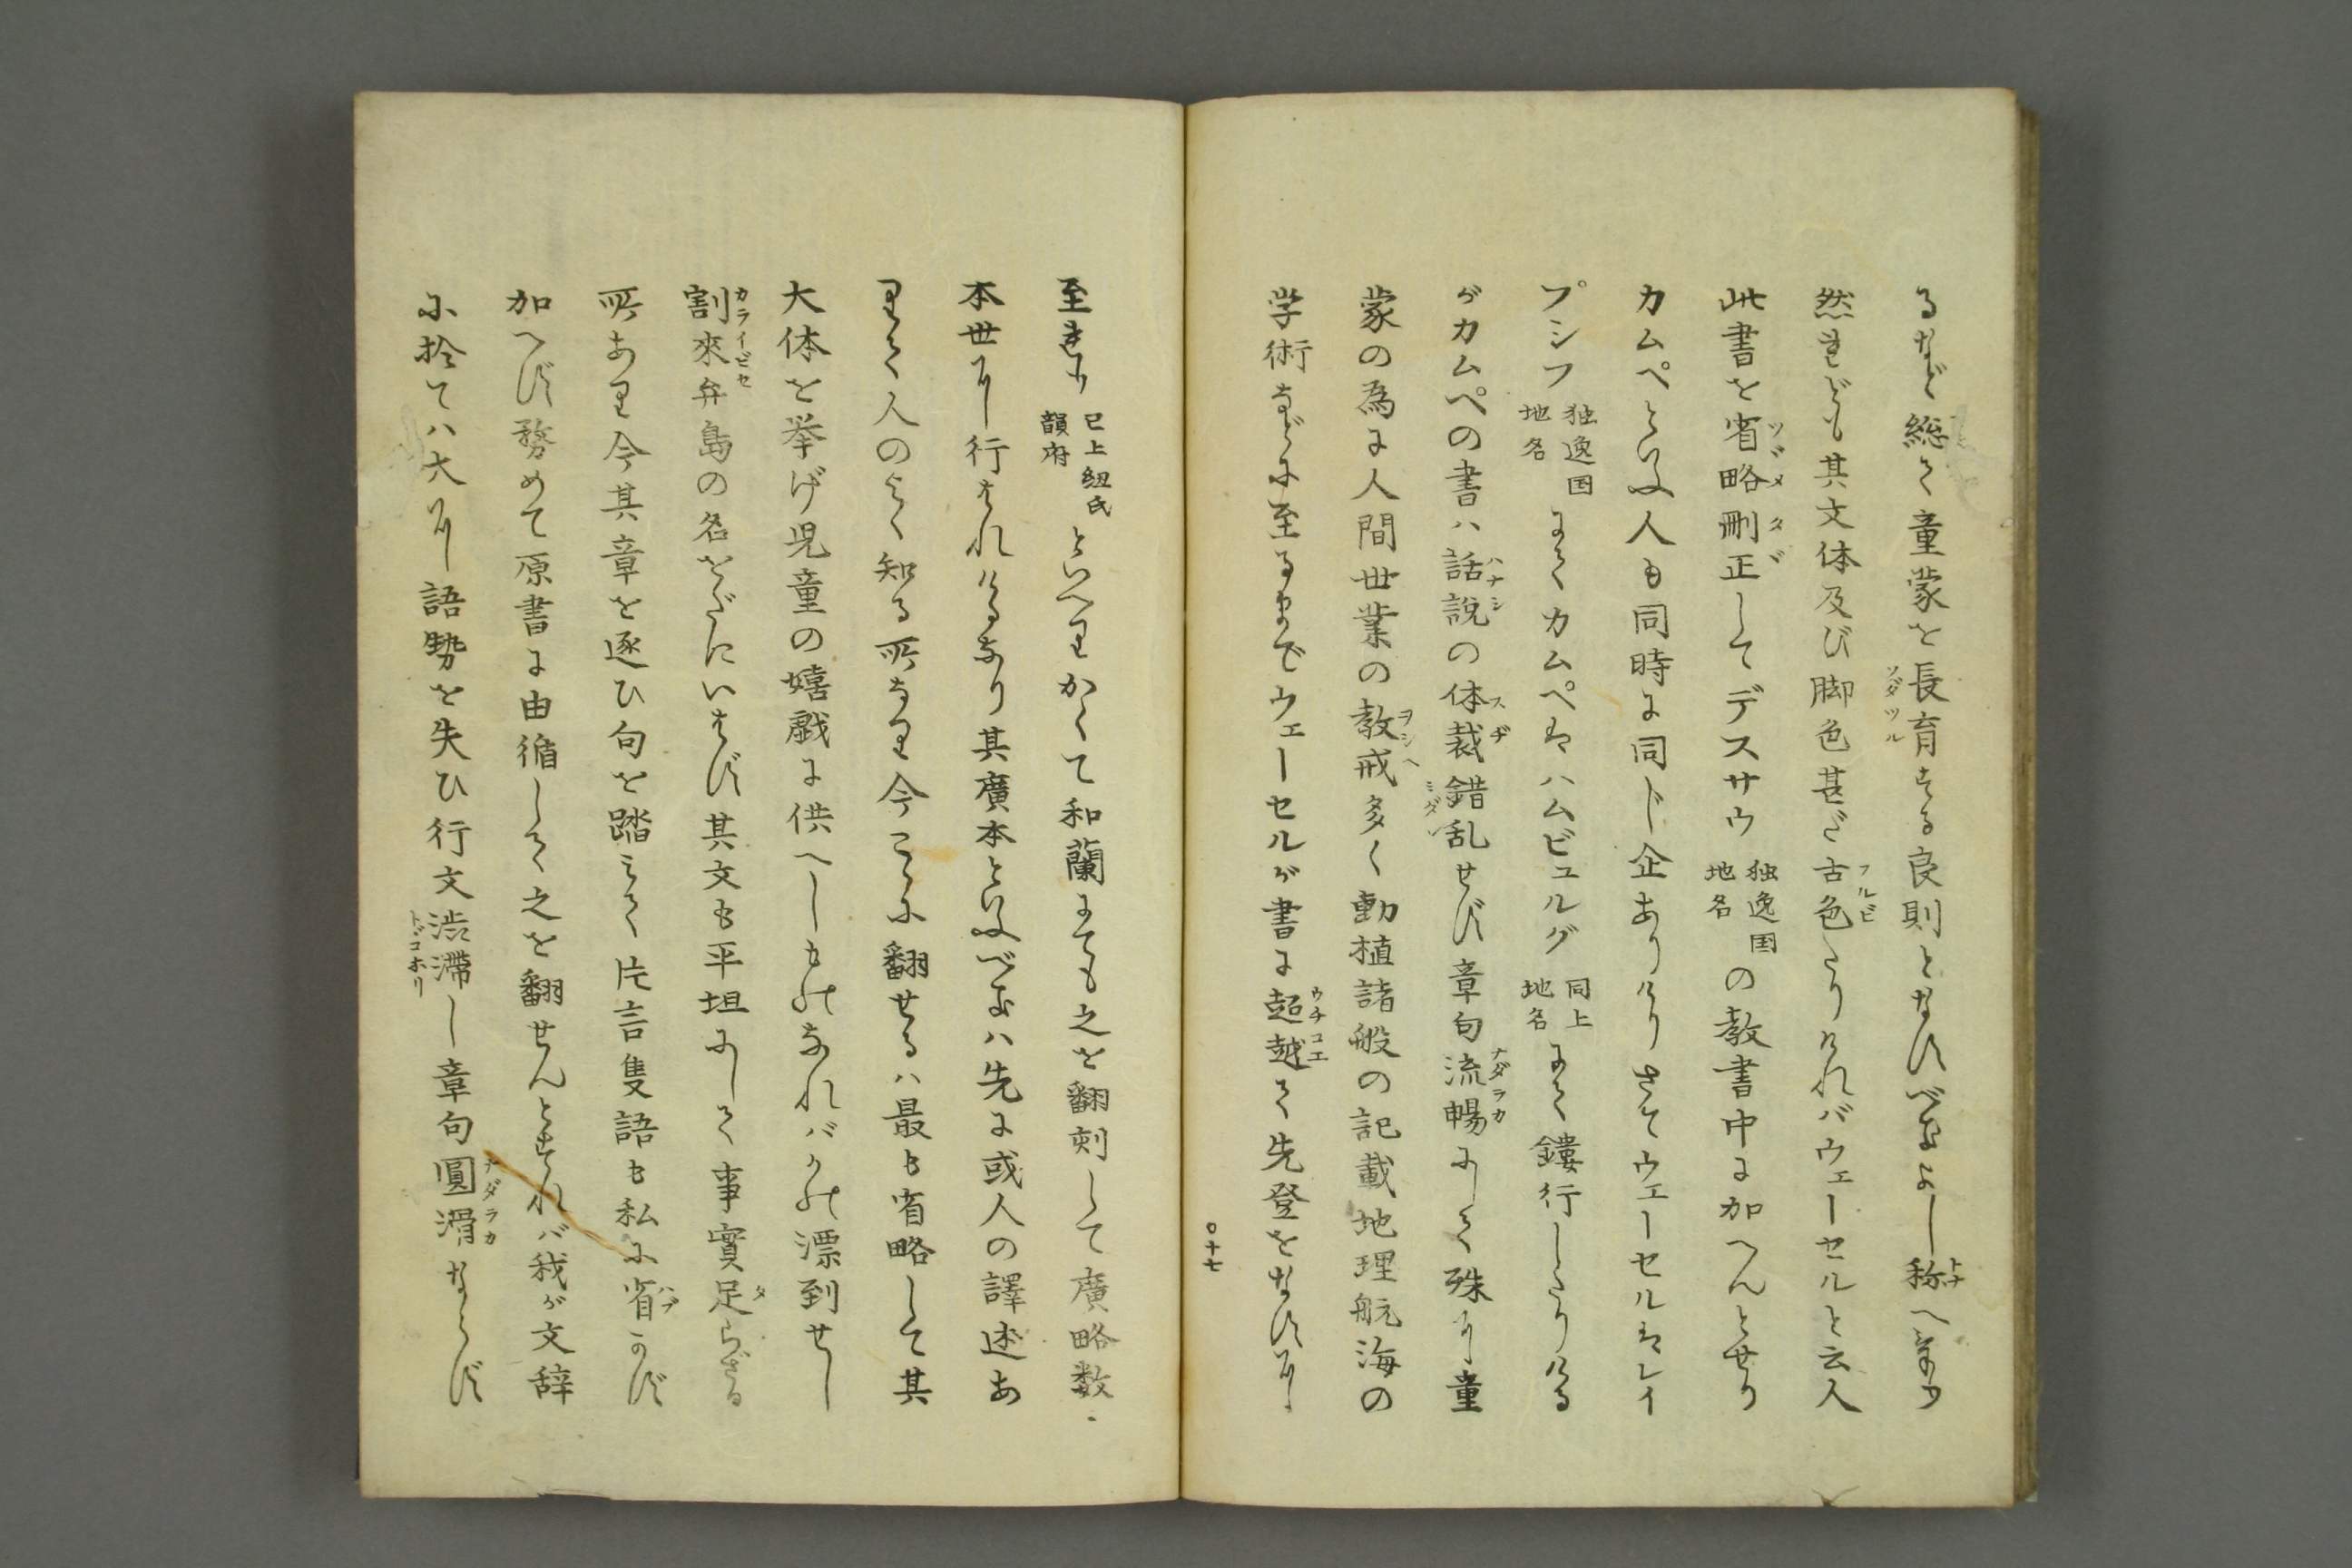 るなど総て童蒙を長育する良則となすべきよし称へあり
ソダツル
トナ
然れども其文体及び脚色甚だ古色たりければウェーセルと云人
フルビ
此書を省略刪正してデスサウ独逸国地名の教書中に加へんとせり
ツヾメタヾ
カムペといふ人も同時に同じ企ありけりさてウェーセルはレイ
プシフ独逸国地名にてカムペはハムビュルグ同上地名にて鏤行したりける
がカムペの書ハ話説の体裁錯乱せず章句流暢にして殊に童
ハナシ
スヂ
ミダレ
ナダラカ
蒙の為に人間世業の教戒多く動植諸般の記載地理航海の
ヲシヘ
学術などに至るまでウェーセルが書に超越て先登をなすに
ウチコエ
〇十七
至れり已上紐氏韻府といへりかくて和蘭にても之を翻刻して廣略数
本世に行はれけるなり其廣本といふべきハ先に或人の譯述あ
りて人のよく知る所なり今こゝに翻せるハ最も省略して其
大体を挙げ児童の嬉戯に供へしものなれバかの漂到せし
割來弁島の名をだにいはず其文も平坦にして事實足らざる
カライビセ
タ
所あり今其章を逐ひ句を踏みて片言隻語も私に省かず
ハブ
加へず務めて原書に由循して之を翻せんとすれバ我が文辞
に於てハ大に語勢を失ひ行文渋滞し章句圓滑ならず
トヾコホリ
ナダラカ